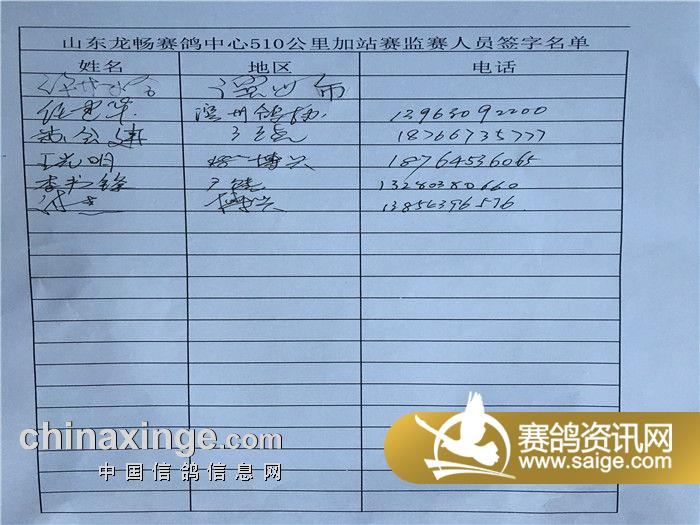 山东龙畅赛鸽中心510公里加站赛监赛人员签字名单
姓名 地区 电话
滨州市
滨州鸽协 12963092200
武公建 18766735777
丁光明 博兴 18764536065
李书锋 广饶 13280380660
博兴 13854396576
chinaxinge.com
中国信鸽信息网
赛鸽资讯网
www.saige.com